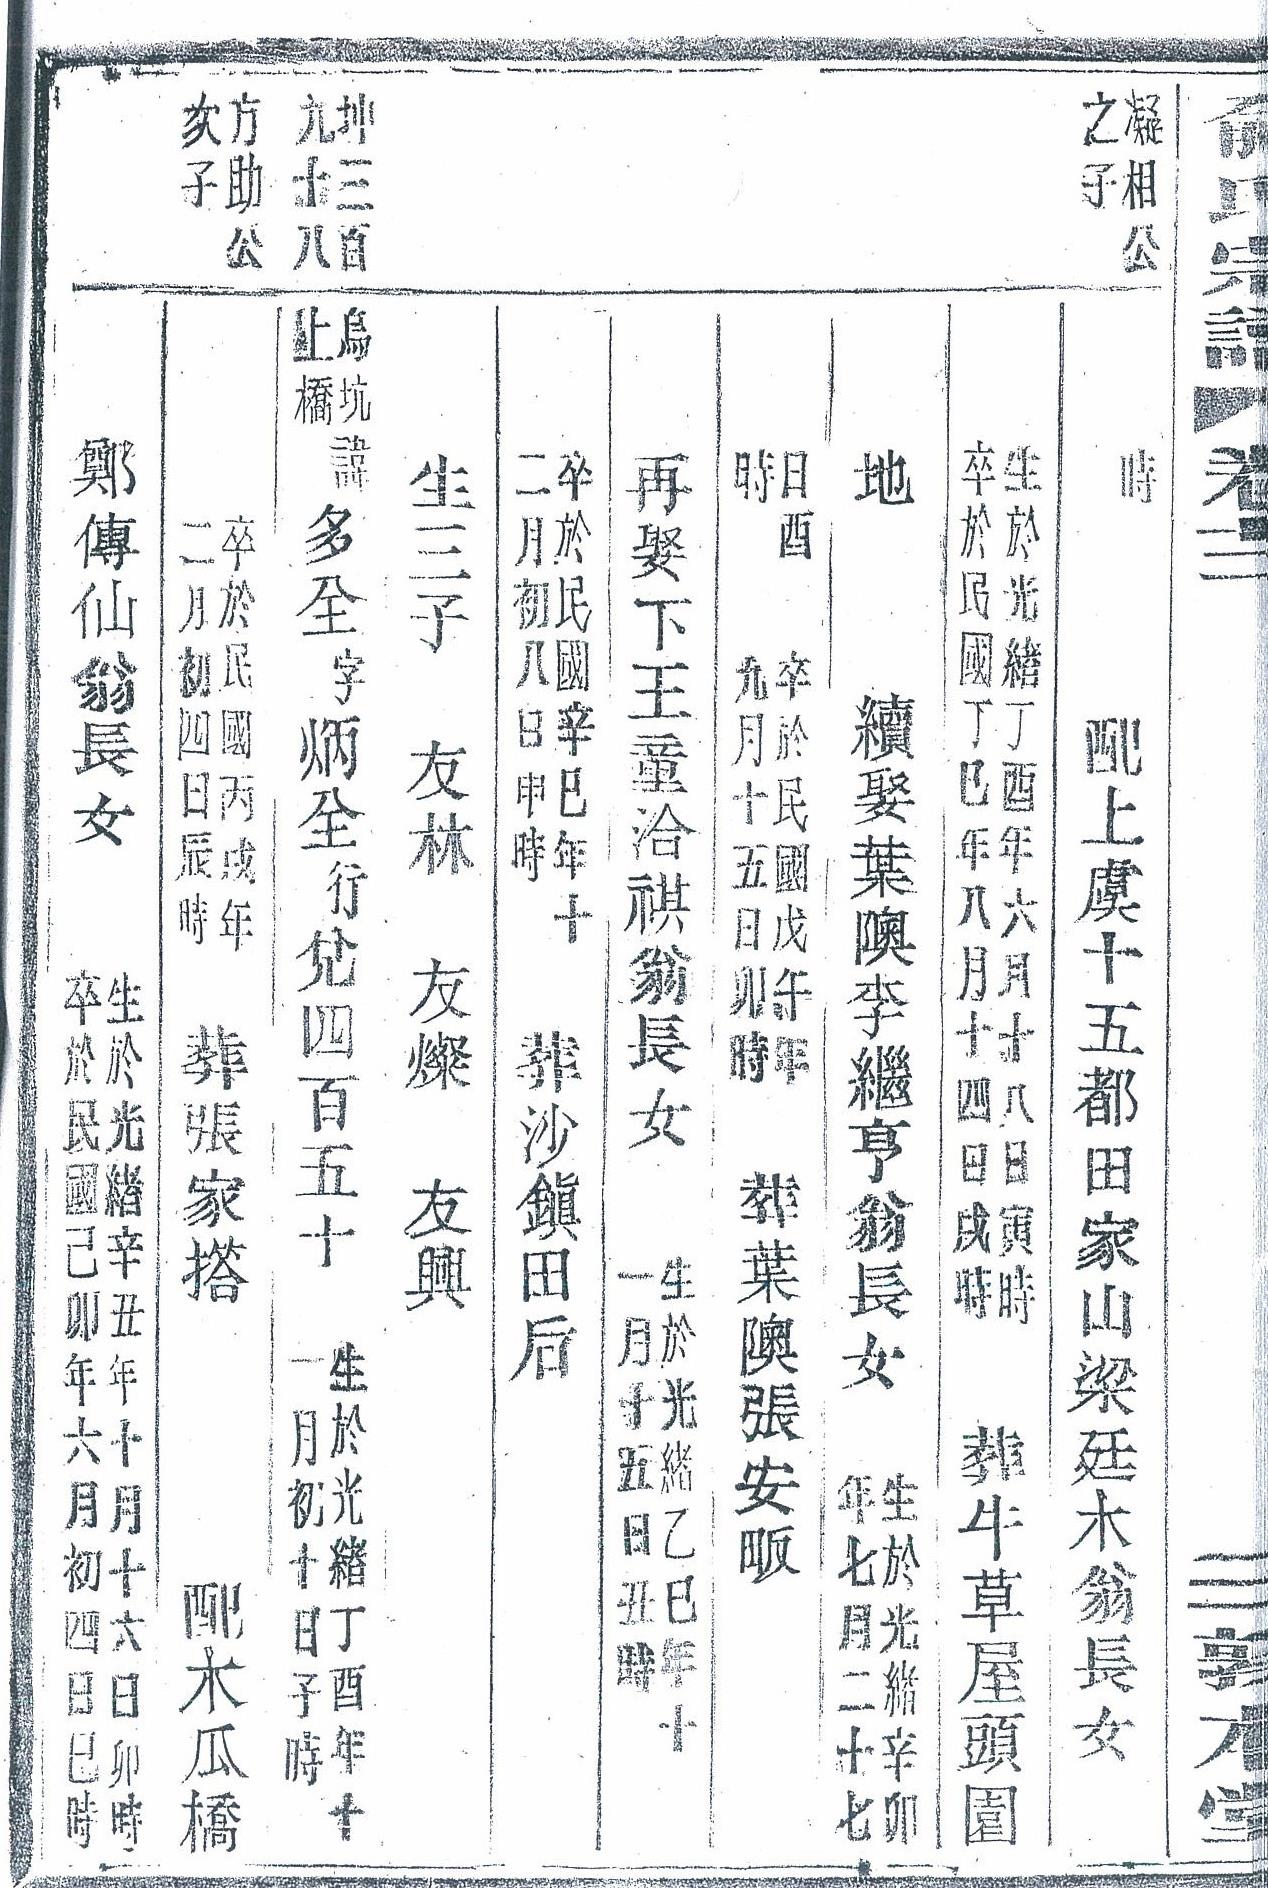 俞氏宗譜 卷二 三 敦本堂
凝相公
之子
時 配上虞十五都田家山梁廷木翁長女
生於光緒丁酉年六月十八日寅時
卒於民國丁巳年八月十四日戌時
葬牛草屋頭園
地 續娶葉隩李繼亨翁長女
生於光緒辛卯
年七月二十七
日酉
時
卒於民國戊午年
九月十五日卯時
葬葉隩張安畈
再娶下王童洽祺翁長女
生於光緒乙巳年十
一月十五日丑時
卒於民國辛巳年十
二月初八日申時
葬沙鎮田后
生三子 友林 友燦 友興
坤三百
九十八
烏坑
上橋
諱多全字炳全行兌四百五十
生於光緒丁酉年十
一月初十日子時
方助公
次子
卒於民國丙戌年
二月初四日辰時
葬張家搭 配木瓜橋
鄭傳仙翁長女
生於光緒辛丑年十月十六日卯時
卒於民國己卯年六月初四日巳時